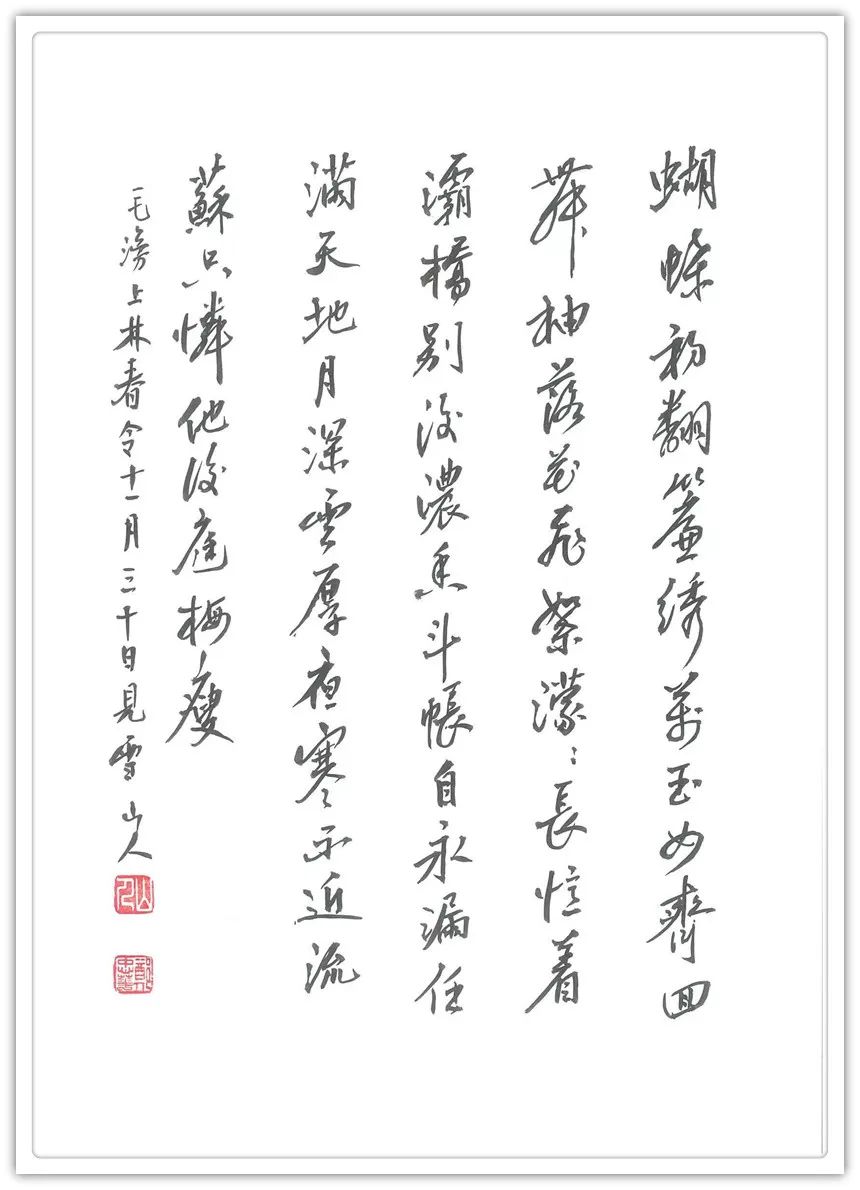 蝴蝶初翻簾綉萬玉女齊囬
舞袖落花飛絮濛〻長憶着
灞橋别後濃香斗帳自永漏任
滿天地月深雲厚夜寒不近流
蘇只憐他後庭梅瘦
毛滂上林春令十一月三十日見雪 山人
山人